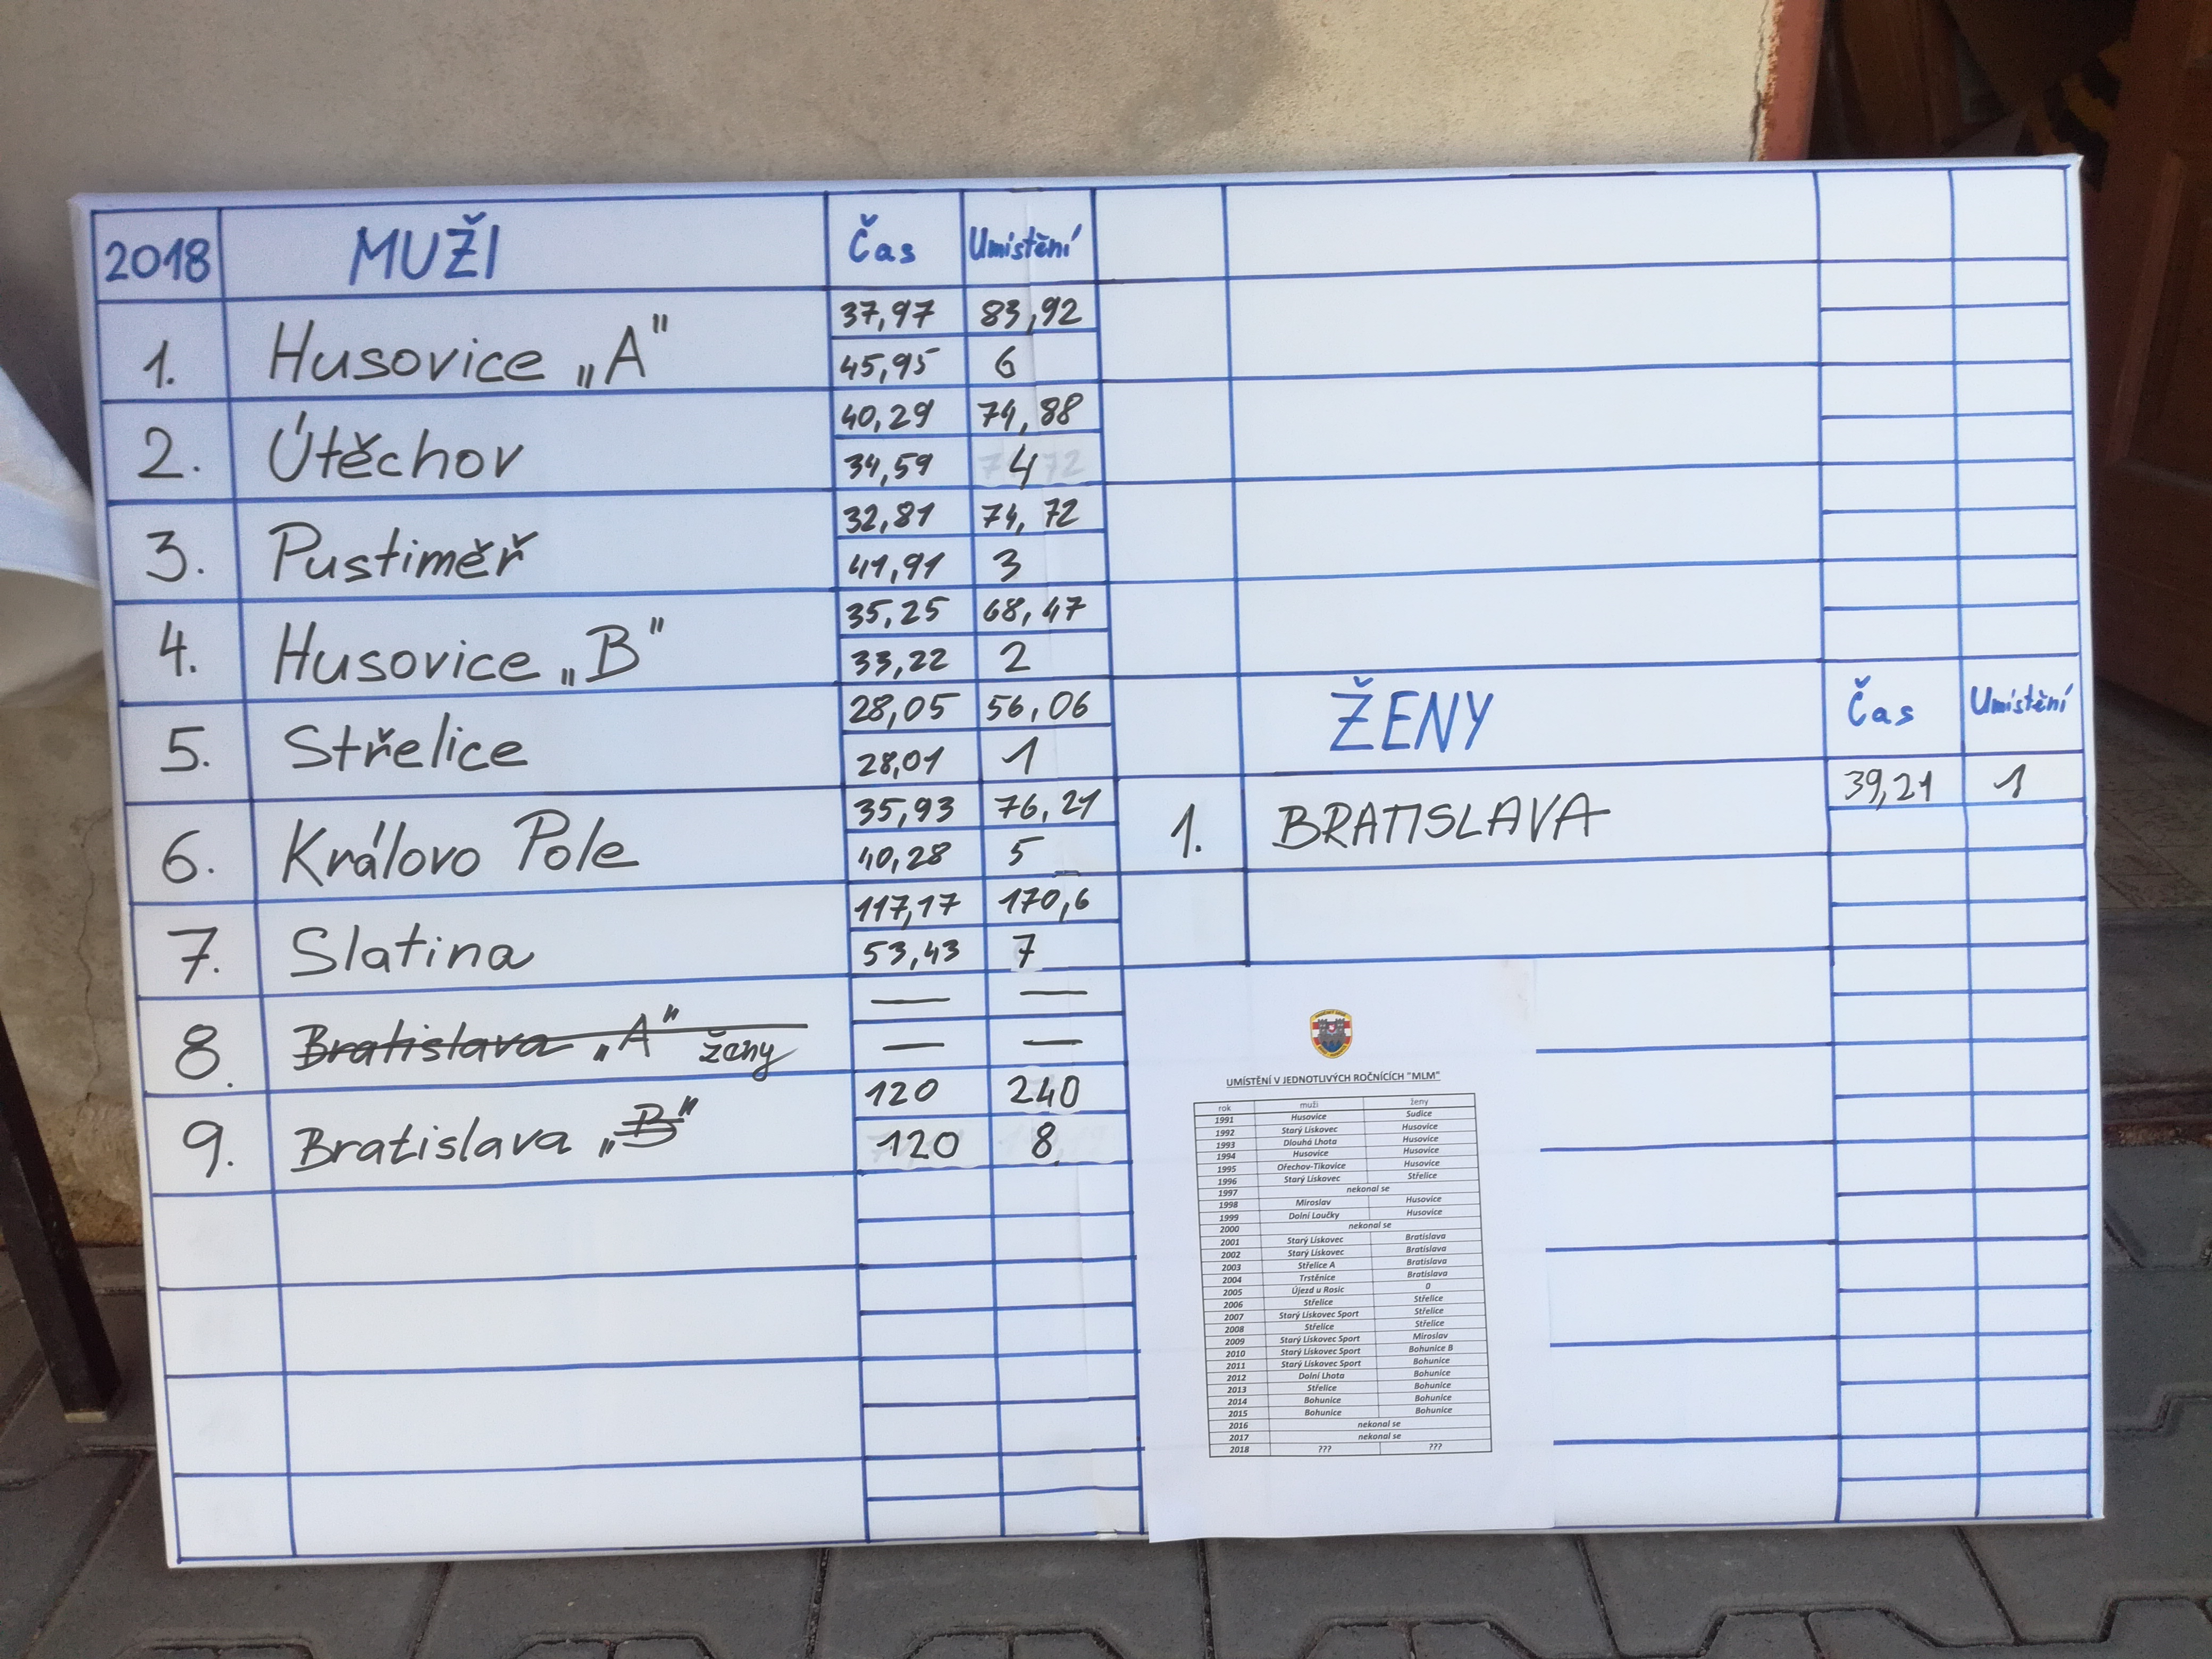 2018 MUŽI Čas Umístění
1. Husovice „A" 37,97 83,92
45,95 6
2. Útěchov 40,29 74,88
34,59 4
3. Pustiměř 32,81 74,72
41,91 3
4. Husovice „B" 35,25 68,47
33,22 2
5. Střelice 28,05 56,06
28,01 1
6. Královo Pole 35,93 76,21
40,28 5
7. Slatina 117,17 170,6
53,43 7
8. Bratislava „A" ženy — —
— —
9. Bratislava „B" 120 240
120 8
ŽENY Čas Umístění
1. BRATISLAVA 39,21 1
UMÍSTĚNÍ V JEDNOTLIVÝCH ROČNÍCÍCH "MLM"
rok muži ženy
1991 Husovice Sudice
1992 Starý Lískovec Husovice
1993 Dlouhá Lhota Husovice
1994 Husovice Husovice
1995 Ořechov-Tikovice Husovice
1996 Starý Lískovec Střelice
1997 nekonal se
1998 Miroslav Husovice
1999 Dolní Loučky Husovice
2000 nekonal se
2001 Starý Lískovec Bratislava
2002 Starý Lískovec Bratislava
2003 Střelice A Bratislava
2004 Trstěnice Bratislava
2005 Újezd u Rosic 0
2006 Střelice Střelice
2007 Starý Lískovec Sport Střelice
2008 Střelice Střelice
2009 Starý Lískovec Sport Miroslav
2010 Starý Lískovec Sport Bohunice B
2011 Starý Lískovec Sport Bohunice
2012 Dolní Lhota Bohunice
2013 Střelice Bohunice
2014 Bohunice Bohunice
2015 Bohunice Bohunice
2016 nekonal se
2017 nekonal se
2018 ??? ???